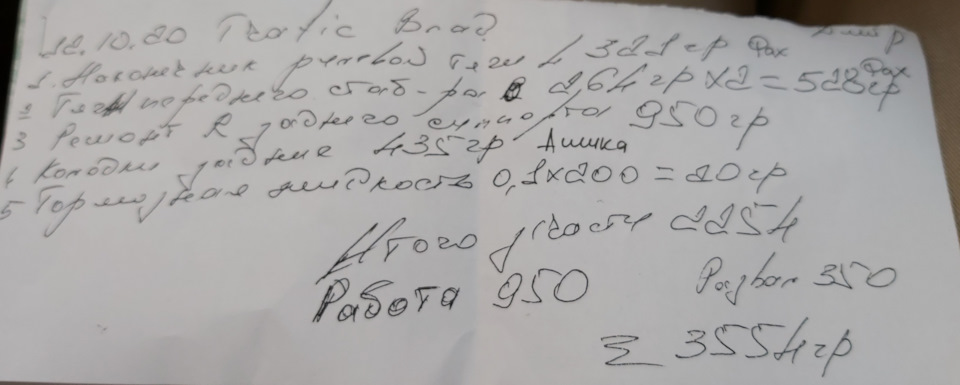 12.10.20 Trafic Влад
1. Наконечник рулевой тяги L 321гр Фах
2 Тяги переднего стаб-ра 264гр х2 = 528гр Фах
3 Ремонт R заднего суппорта 950гр
4 Колодки задние 435гр Ашика
5 Тормозная жидкость 0,1х200 = 20гр
Итого з/части 2254
Работа 950 Развал 350
Σ 3554гр